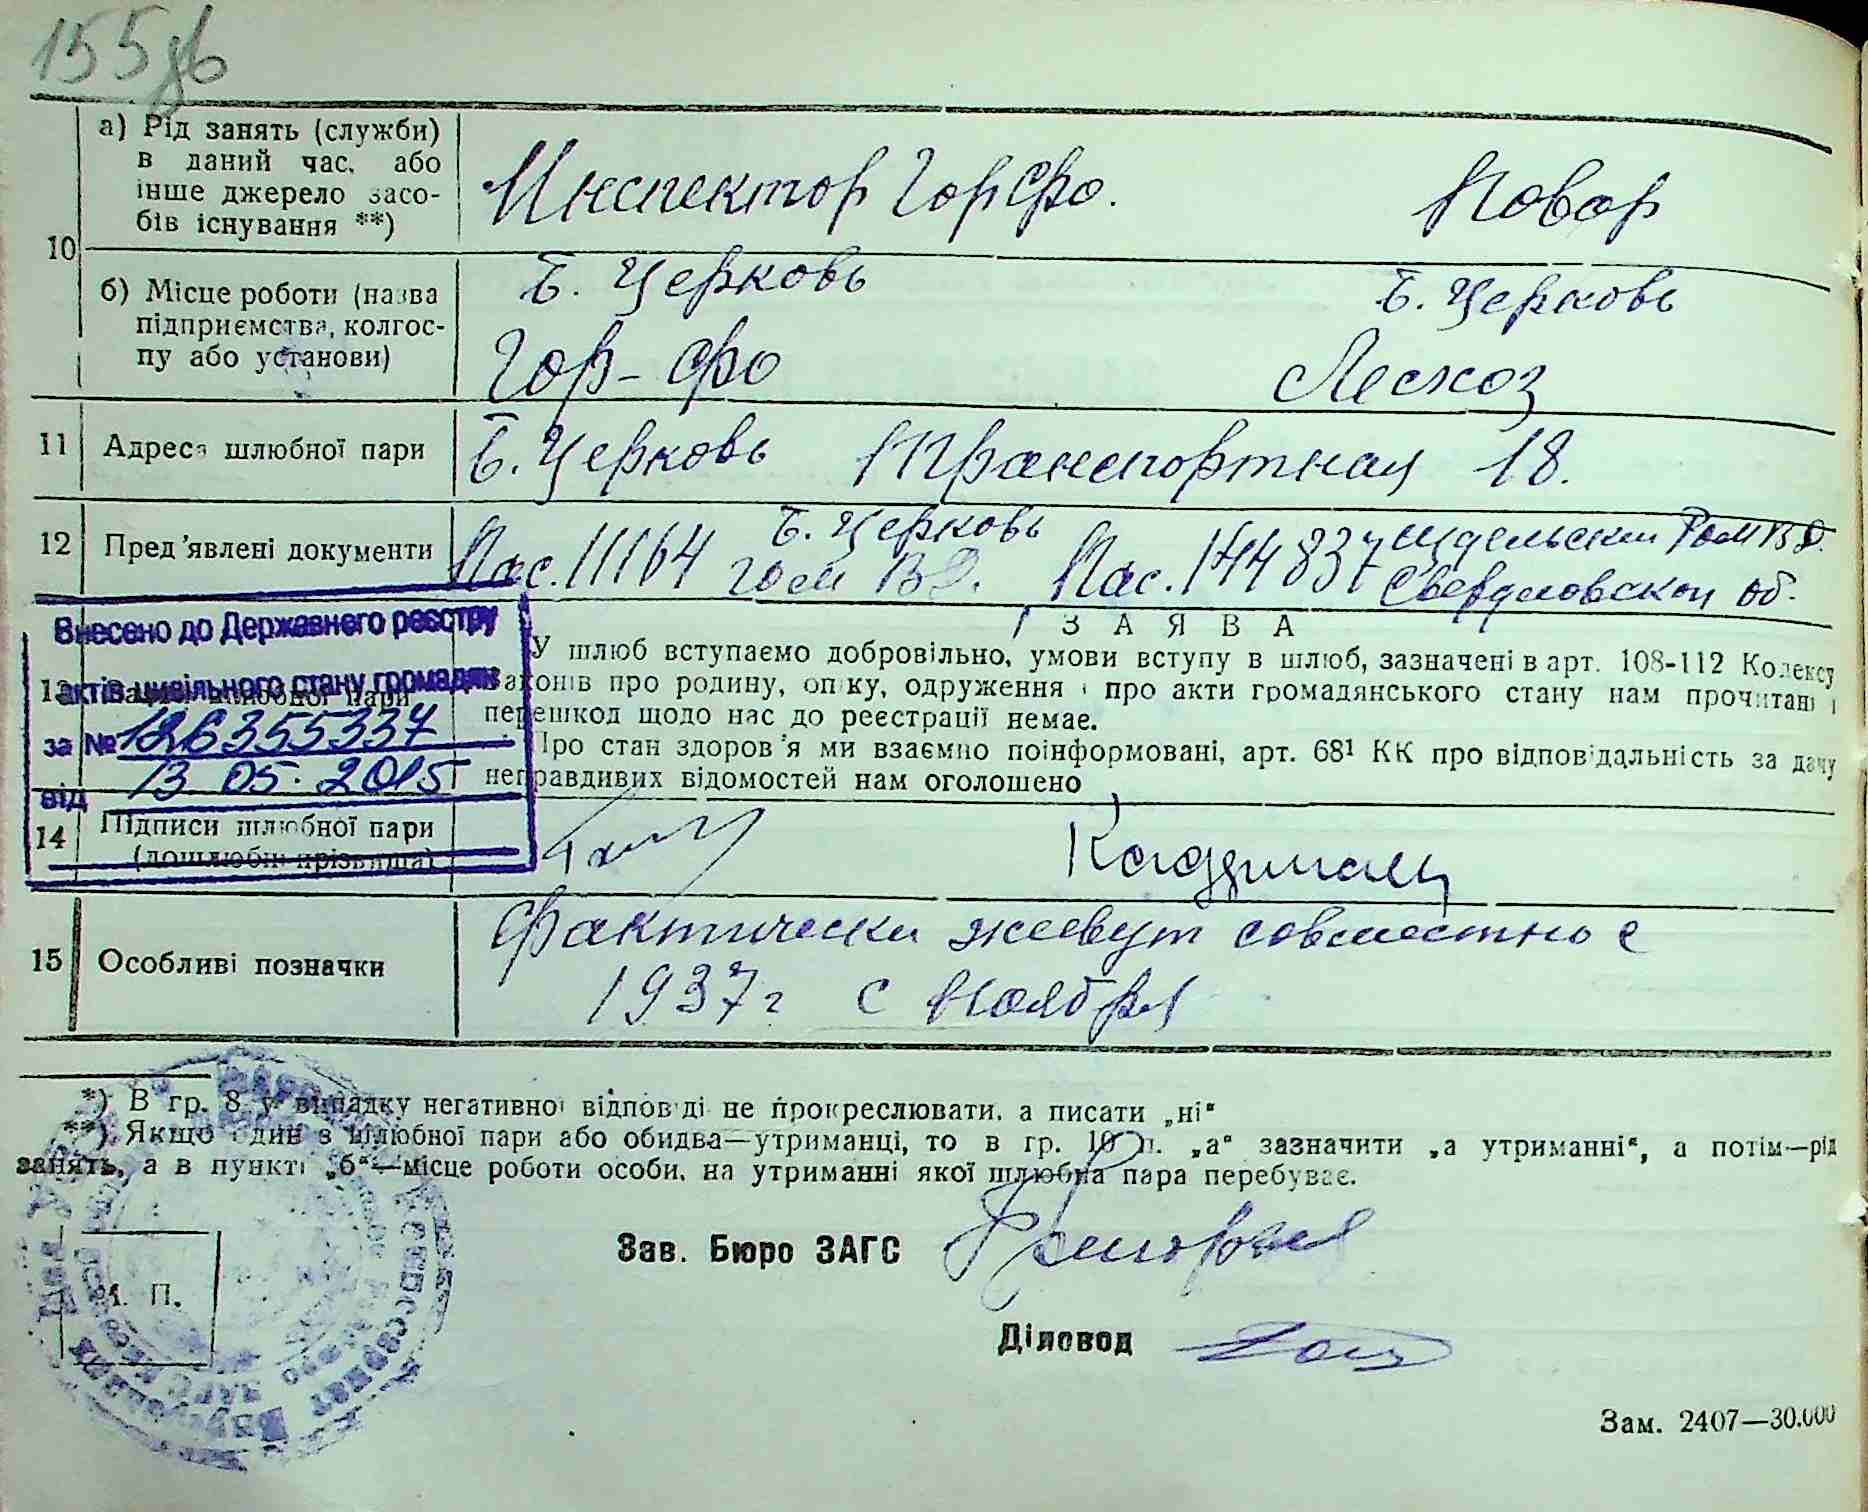 155
10 а) Рід занять (служби) в даний час, або інше джерело засобів існування **)
Инспектор Горфо. Повар
б) Місце роботи (назва підприємства, колгоспу або установи)
Б. Церковь Б. Церковь
Гор-фо Лесхоз
11 Адреса шлюбної пари Б. Церковь Транспортная 18.
12 Пред'явлені документи Пас. 11164 Б. Церковь Пас. 144837
Свердловской об.
Внесено до Державного реєстру
актів цивільного стану громадян
за №
від 13 05. 2015
З А Я В А
У шлюб вступаємо добровільно, умови вступу в шлюб, зазначені в арт. 108-112 Колексу
законів про родину, опіку, одруження і про акти громадянського стану нам прочитані і
перешкод щодо нас до реєстрації немає.
Про стан здоров'я ми взаємно поінформовані, арт. 68¹ КК про відповідальність за дачу
неправдивих відомостей нам оголошено
14 Підписи шлюбної пари
(дошлюбні прізвища)
15 Особливі позначки
Фактически живут совместно с
1937 г с Ноября
*) В гр. 8 у випадку негативної відповіді не прокреслювати, а писати „ні“
**) Якщо один з шлюбної пари або обидва—утриманці, то в гр. 10 п. „а“ зазначити „а утриманні“, а потім—рід
занять, а в пункті „б“—місце роботи особи, на утриманні якої шлюбна пара перебуває.
Зав. Бюро ЗАГС
М. П.
Діловод
Зам. 2407—30.000